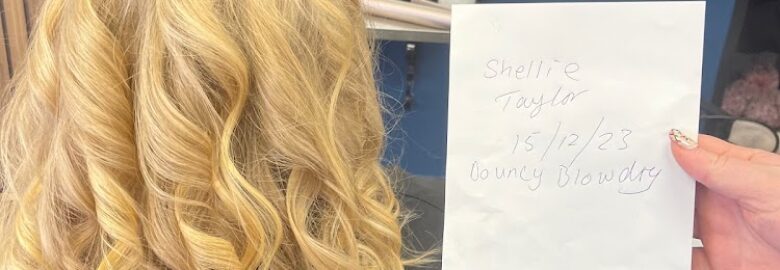 Shellie
Taylor
15/12/23
Bouncy Blowdry